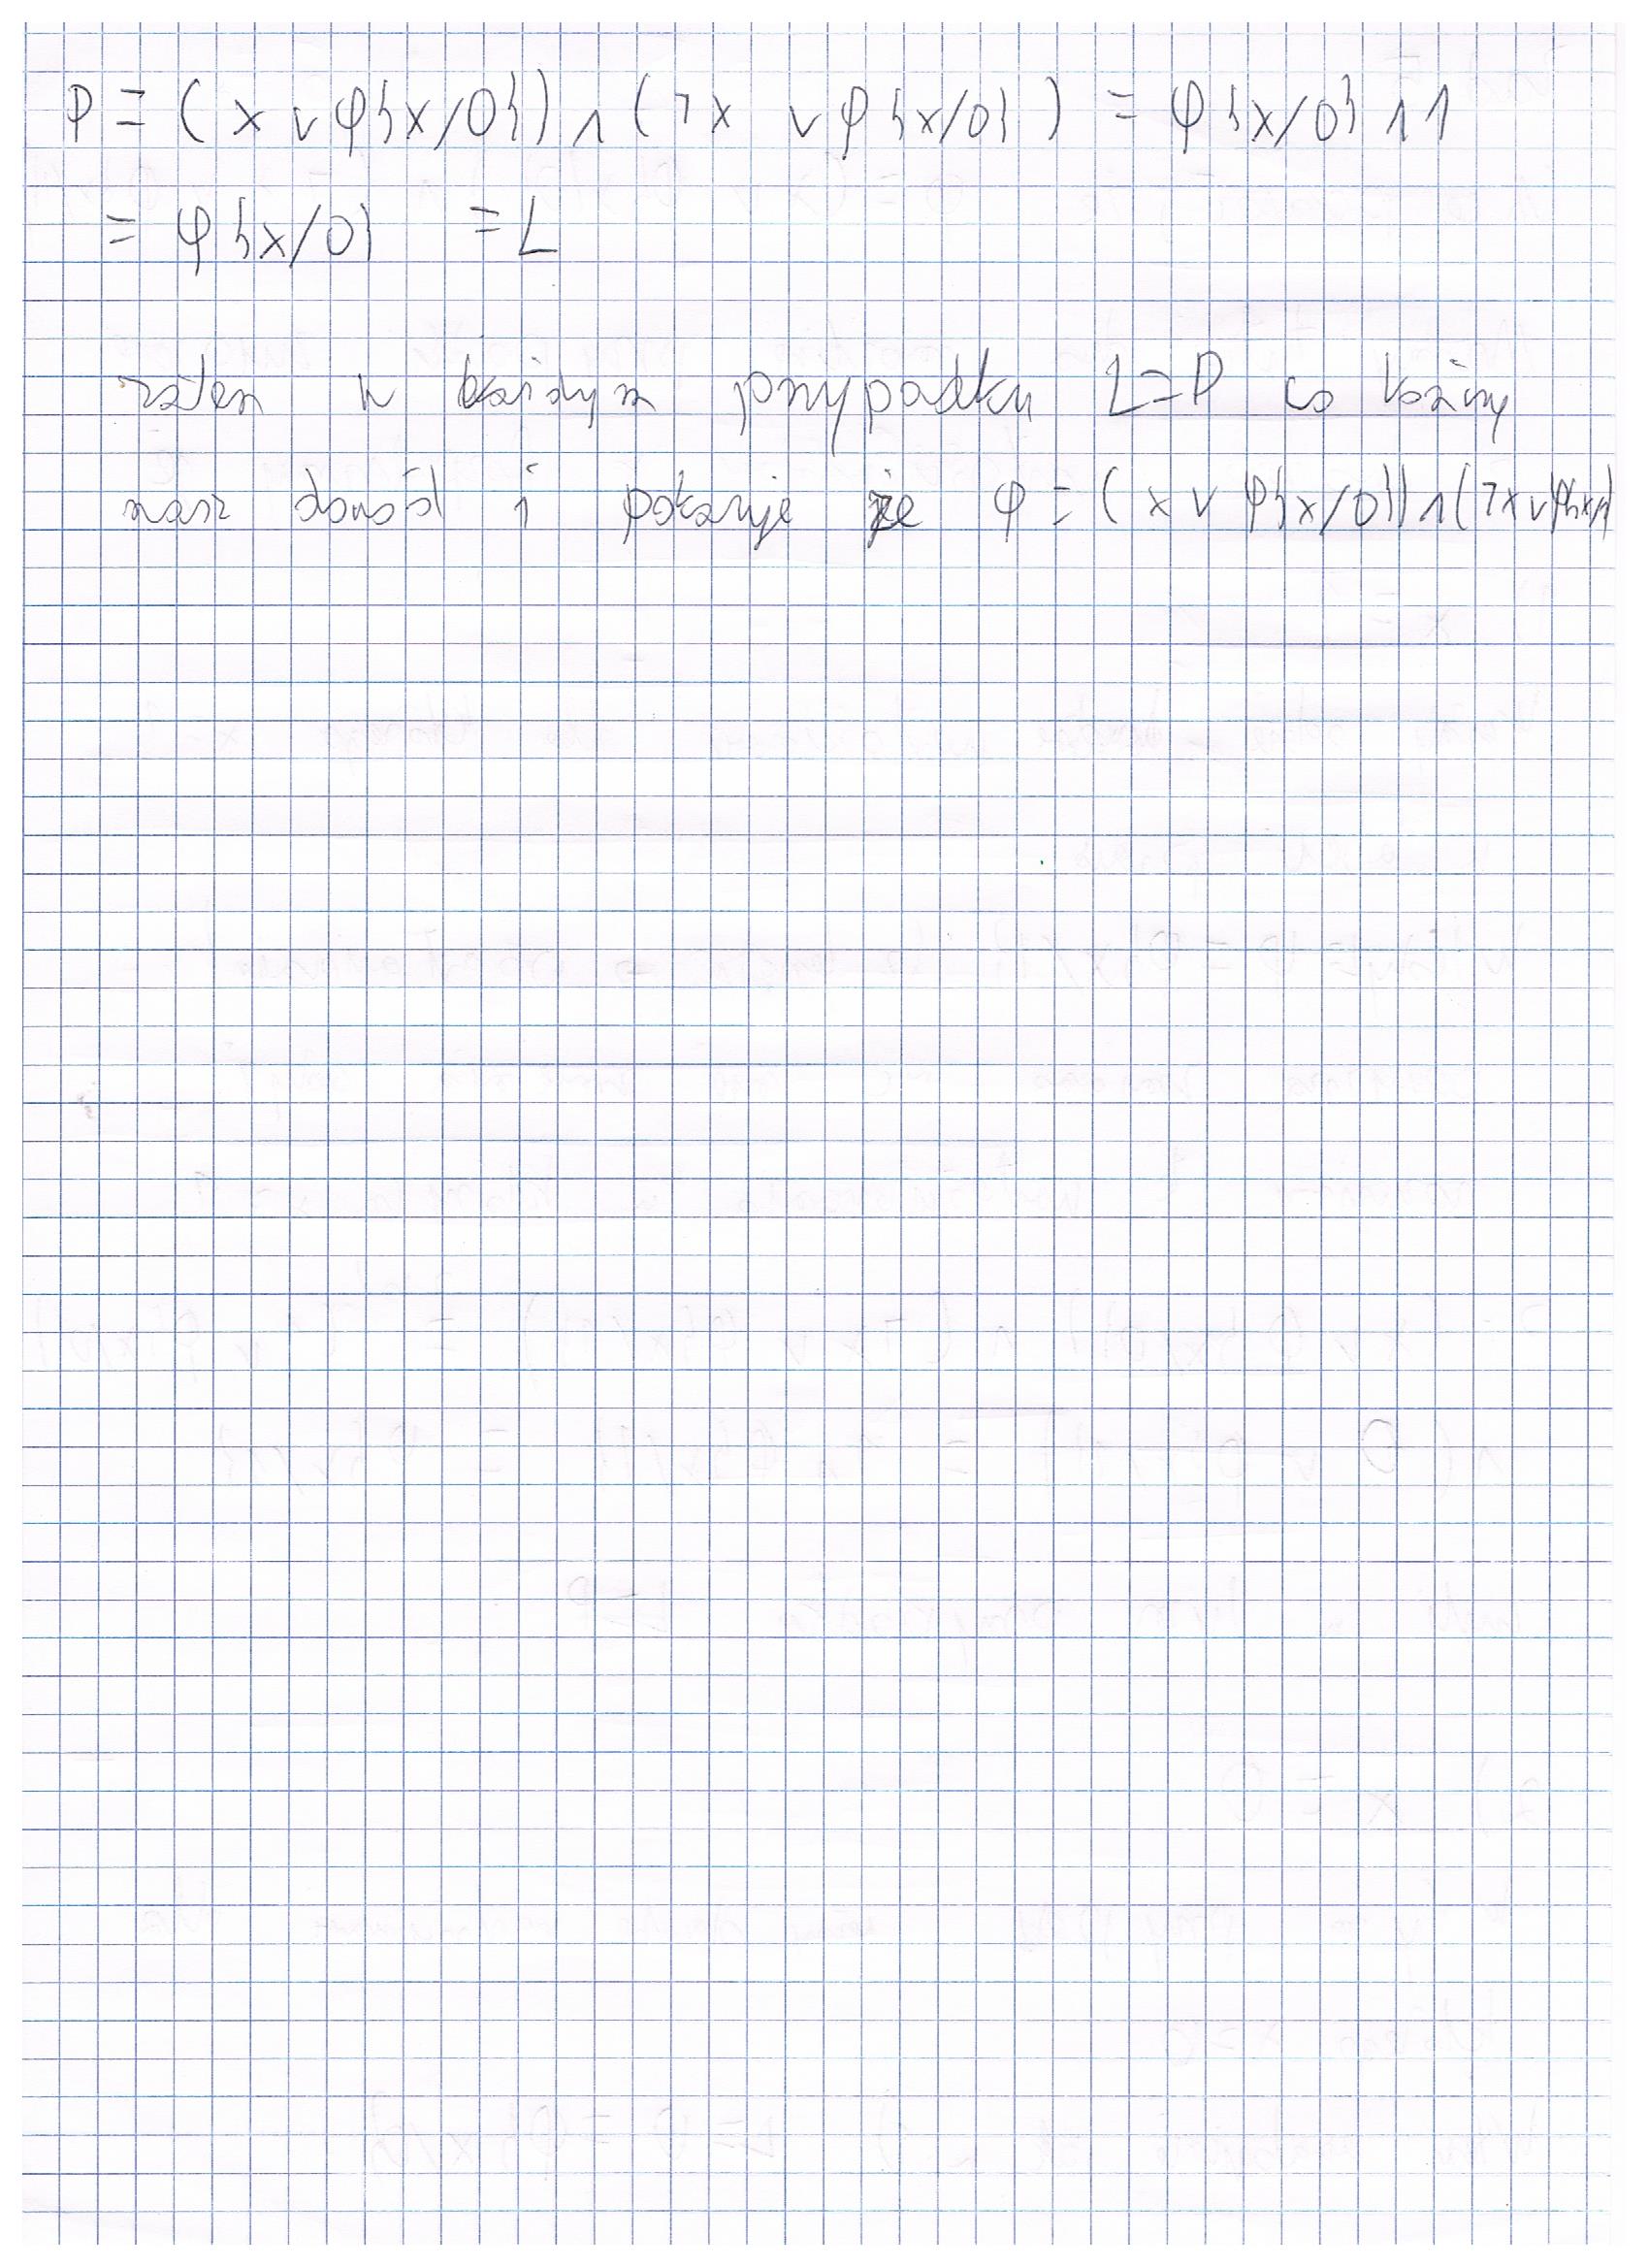 P = (x ∨ φ{x/0}) ∧ (¬x ∨ φ{x/0}) = φ{x/0} ∧ 1
= φ{x/0} = L
zatem w każdym przypadku L=P co kończy
nasz dowód i pokazuje że φ = (x ∨ φ{x/0}) ∧ (¬x ∨ φ{x/1})